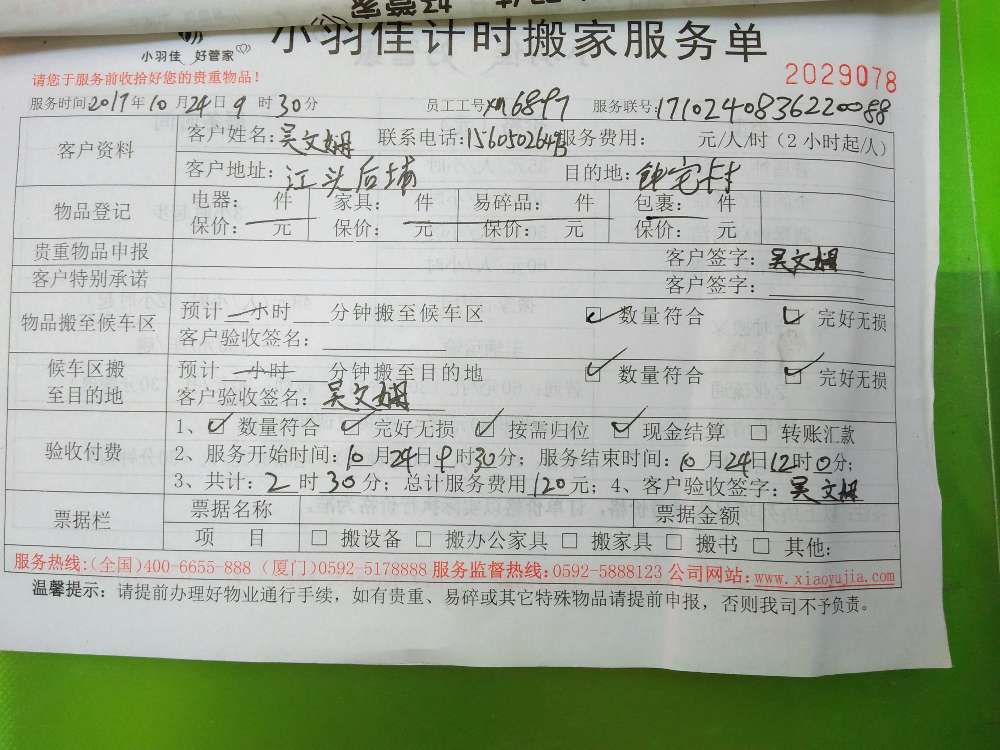 好管家
小羽佳 好管家
小羽佳计时搬家服务单
请您于服务前收拾好您的贵重物品！
2029078
服务时间2017年10月24日9时30分 员工工号:xm6897 服务联号:1710240836220088
客户资料 客户姓名:吴文娟 联系电话: 服务费用: 元/人/时（2小时起/人）
客户地址:江头后埔 目的地:钟宅
物品登记 电器: 件 家具: 件 易碎品: 件 包裹: 件
保价: 元 保价: 元 保价: 元 保价: 元
贵重物品申报 客户签字:吴文娟
客户特别承诺 客户签字:
物品搬至候车区 预计 小时 分钟搬至候车区 ☑ 数量符合 ☑ 完好无损
客户验收签名:
候车区搬至目的地 预计 小时 分钟搬至目的地 ☑ 数量符合 ☑ 完好无损
客户验收签名:吴文娟
验收付费 1、☑ 数量符合 ☑ 完好无损 ☑ 按需归位 ☑ 现金结算 □ 转账汇款
2、服务开始时间:10月24日9时30分；服务结束时间:10月24日12时0分；
3、共计:2时30分；总计服务费用120元；4、客户验收签字:吴文娟
票据栏 票据名称 票据金额
项 目 □ 搬设备 □ 搬办公家具 □ 搬家具 □ 搬书 □ 其他:
服务热线:(全国)400-6655-888 (厦门)0592-5178888 服务监督热线:0592-5888123 公司网站:www.xiaoyujia.com
温馨提示: 请提前办理好物业通行手续，如有贵重、易碎或其它特殊物品请提前申报，否则我司不予负责。